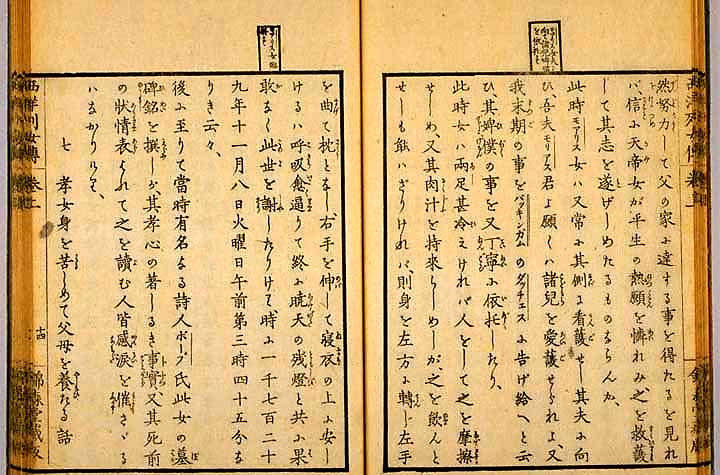 然努力して父の家に達する事を得たるを見れ
バ、信に天帝女が平生の熱願を憐れみ、之を救護
して其志を遂げしめたるものならんか、
此時モリアス女ハ又常に其側に看護せし其夫に向
ひ、吾夫モリアス君よ願くハ諸兒を愛護せられよ、又
我末期の事をバッキンガムのダッチェスに告げ給へと云
ひ、其婢僕の事を又丁寧に依托したり、
此時女ハ両足甚冷えけれバ、人をして之を摩擦
せしめ、又其肉汁を持來らしめしが之を飲んと
せしも能ハざりけれバ、則身を左方に轉じ左手
を曲て枕となし右手を伸して寝衣の上に安し
けるハ呼吸愈逼りて終に暁天の残燈と共に果
敢なく此世を謝したりけり時に一千七百二十
九年十一月八日火曜日午前第三時四十五分な
りき云々、
後に至りて當時有名なる詩人ポープ氏此女の墓
碑銘を撰しが、其孝心の著しるき事實又其死前
の状情表はれて之を讀む人皆感涙を催さゞる
ハなかりしとて、
七 孝女身を苦しめて父母を養たる話
西洋列女傳 巻上
十四